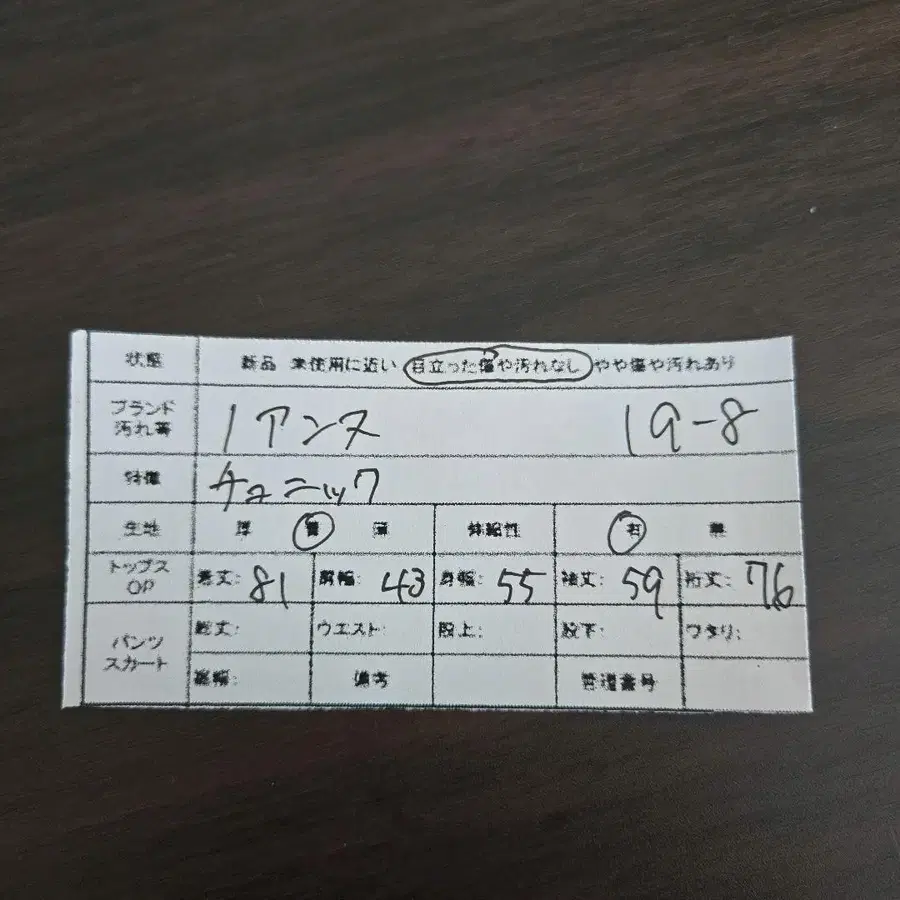 状態 新品 未使用に近い 目立った傷や汚れなし やや傷や汚れあり
ブランド
汚れ等 1 アンヌ 19-8
特徴 チュニック
生地 厚 普 薄 伸縮性 有 無
トップス
OP 着丈: 81 肩幅: 43 身幅: 55 袖丈: 59 裄丈: 76
パンツ
スカート 総丈: ウエスト: 股上: 股下: ワタリ:
裾幅: 備考 管理番号